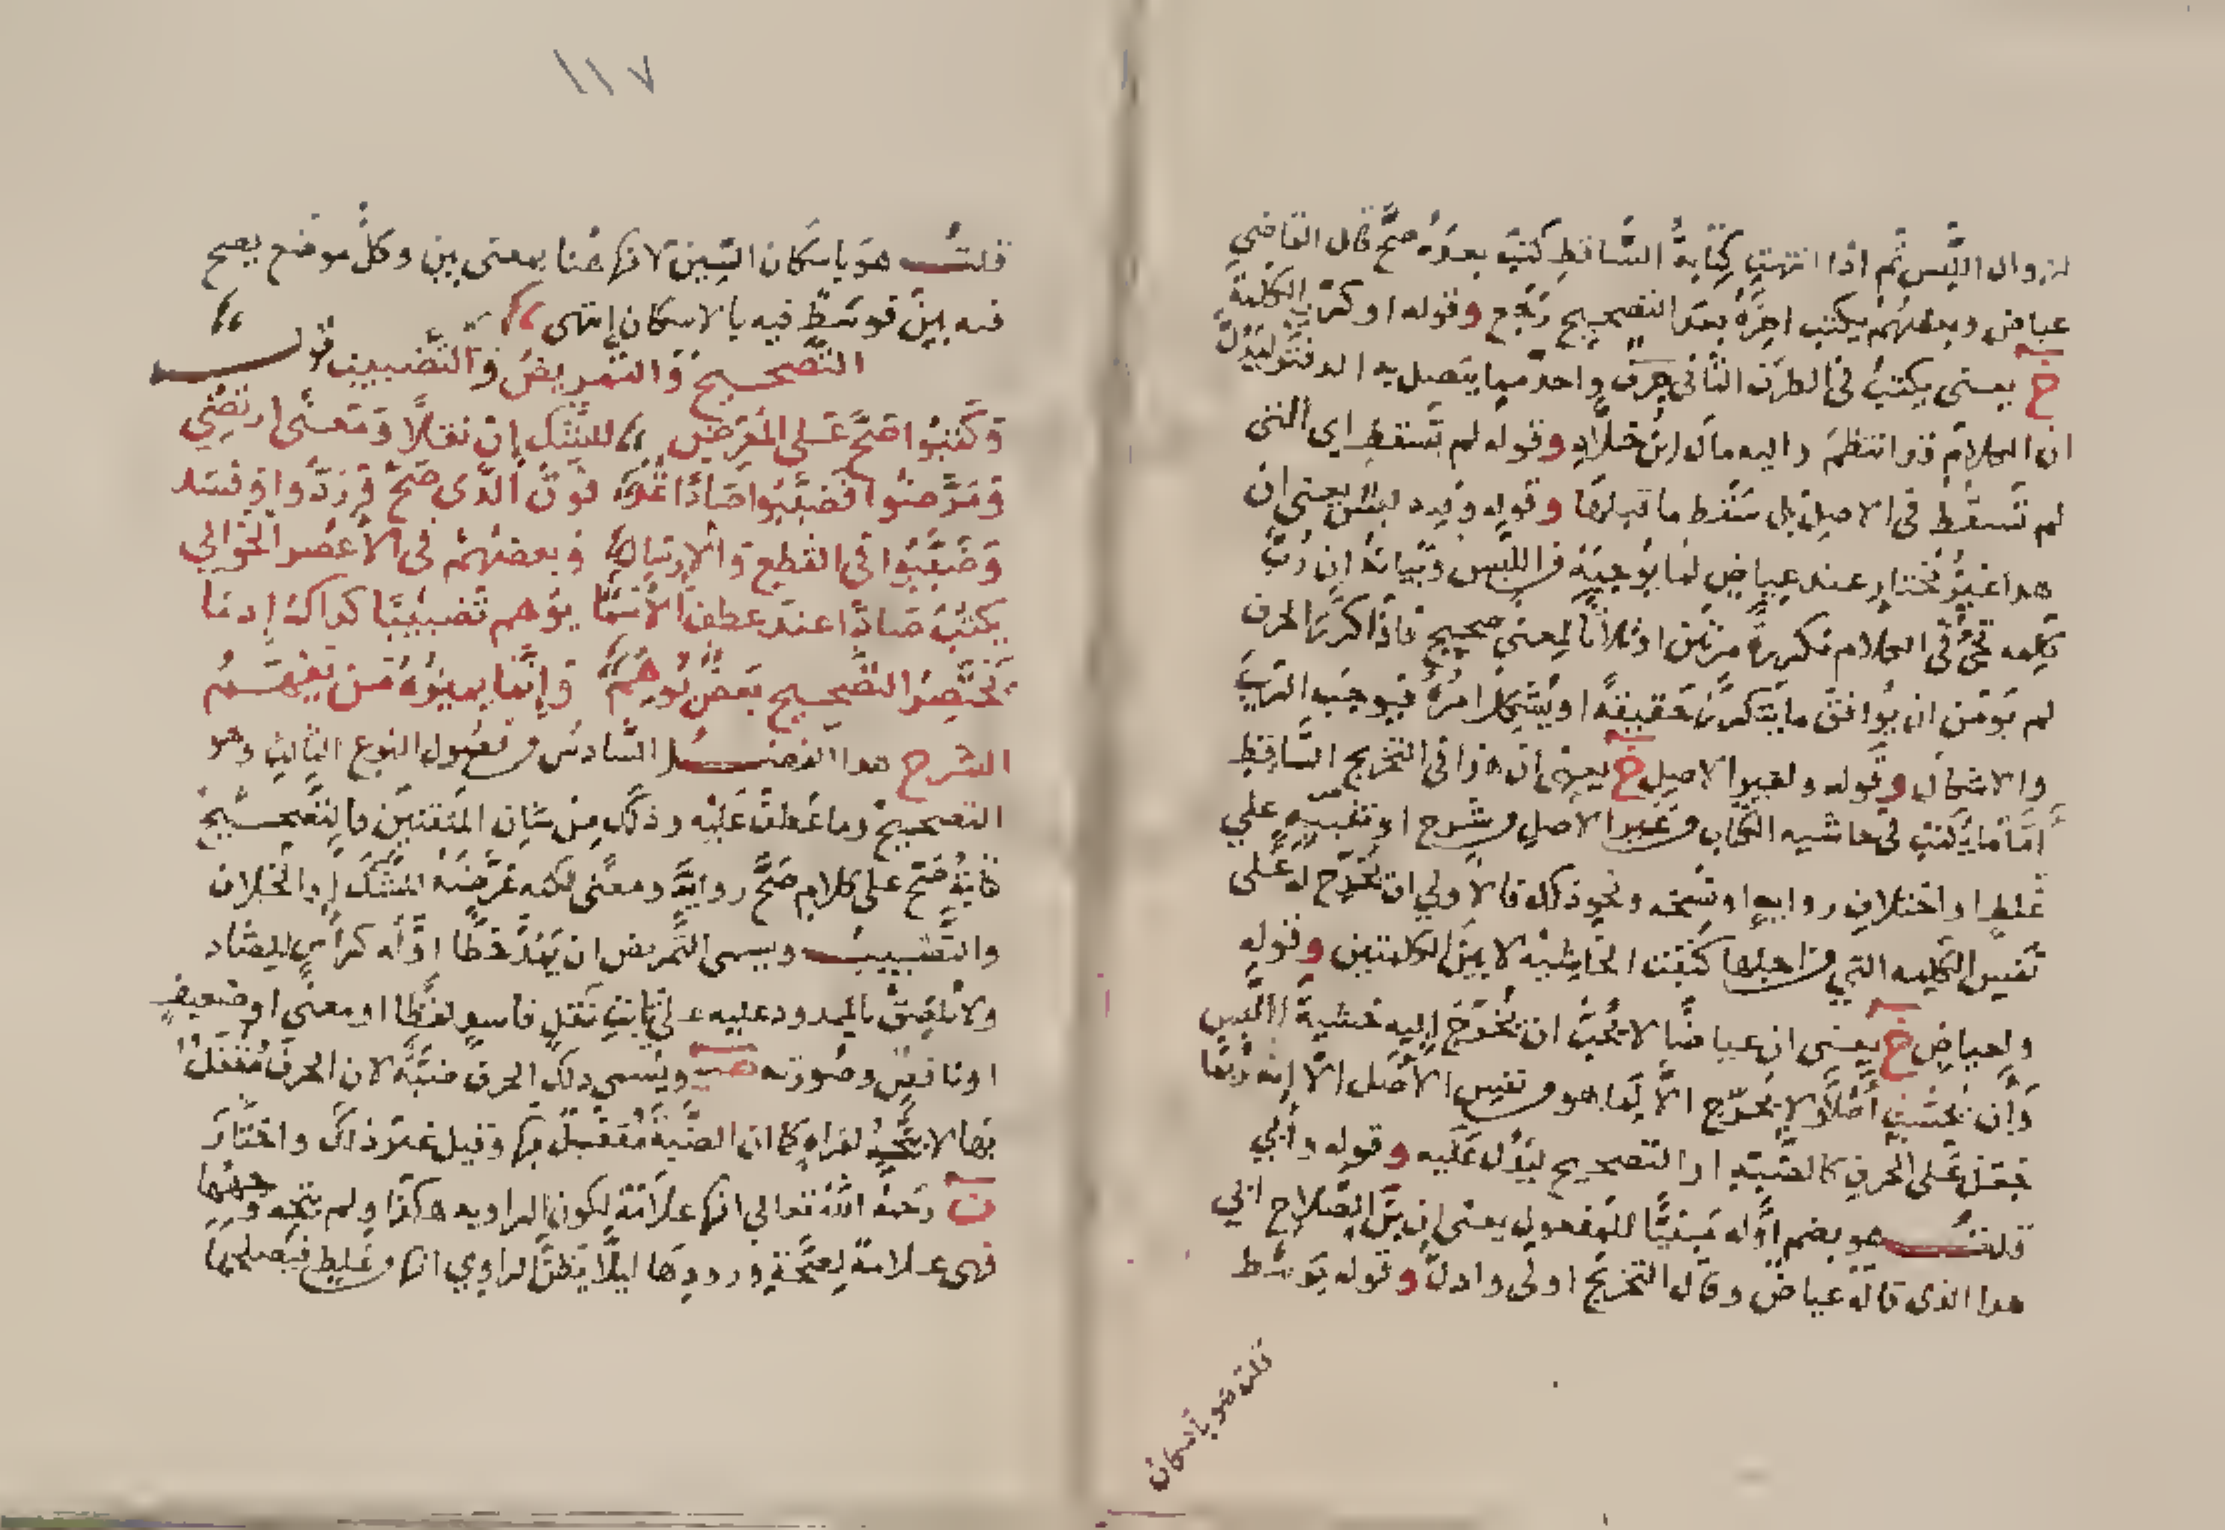 لزوال اللَّبس ثم اذا انتهت كِتَابةُ السَّاقط كتبَ بعدَهُ صحَّ قال القاضي
عياض وبعضهُم يكتب اخِرَهُ بعد التصحيح رَجع وقوله اوكرّر الكلمةَ
خ يعني يكتبُ في الطرَف الثاني حرف واحد مما يتصل به الدفتر ليَدُلّ
ان الكلامَ قد انتظمَ واليه مالَ ابنُ خلّاد وقوله لم تسقط اي التي
لم تَسقط في الاصل بل سَقَط ما قبلها وقوله وفيه لبس يعني ان
هدا غيرُ مُختار عند عياض لما يُوجبُهُ من اللَّبس وبَيانهُ ان رُبَّ
كلمه تجئ في الكلام مكررةً مرتين او ثلاثًا لمعنى صحيح فاذا كرّرنا الحرف
لم نومَن ان يُوافقَ ما يتكرَّرُ حقيقةً او يُشكِلَ امرُهُ فيوجب الرَّيبَ
والاشكال وقوله ولغير الاصل خ يعني ان هذا في التخريج السَّاقط
امَّا ما يُكتبُ في حاشيه الكتاب من غَير الاصل من شرح او تنبيه على
غلط او اختلاف روايه او نسخه ونحو ذلك فالاولي ان يُخرّج له على
نفس الكلمه التي من اجلها كُتبت الحاشيه لا بينَ الكلمتين وقوله
ولعياض خ يعني ان عياضًا لا يُحبّ ان يُخرّج إليه خشيةَ اللَّبس
وَان يُحسَب أصْلًا ولا يُخرّج الَّا لِمَا هو من نفس الاصل الا انه رُبما
جَعَلَ على الحرف كالضَّبّةِ او التصحيح ليَدُل عَليه وقوله وأُبي
قلتُ هو بضم اوَّله مَبنيًّا للمفعول يعني ان بن الصّلاح ابي
هدا الذي قاله عياض وقال التخريج اولى وادلّ وقوله بوسْط
قلت هو باسكان
١١٧
قلتُ هوَ باسكان السِّين لانها هُنا بمعنى بين وكلّ موضع يصح
فيه بينَ فوسْط فيه بالاسكان إنتهى
التَّصحيحُ وَالتمريضُ وَالتَّضبيب
وَكَتَبُوا صَحَّ عَلى المُعَرّضِ للشَّكِ إنْ نقلًا وَمَعنًى ارتضِي
وَمَرَّضُوا فضَبَّبُوا صَادًا تُمَدّ فوقَ الذي صَحَّ وُرُدًّا وفسَد
وَضَبَّبُوا في القطع وَالإرسال وبعضهُمْ في الأعصُر الخَوالي
يكتُبُ صَادًا عندَ عطفِ الأسمَا يوهم تَضبيبًا كذاك إذ مَا
يَختَصِرُ التَّصحيحَ بَعضٌ يُوهِمُ وَإنَّما يميزُهُ مَن يَفهَمُ
الشرح هدا الفصلُ السَّادسُ من فصُول النوع الثالث وهو
التصحيحُ وما عُطفَ عَليه وذلك مِن شان المتقنين فالتَّصحيحُ
كتابةُ صَحّ على كلام صَحَّ روايةً ومعنًى لكنه عُرضَة للشّكّ او الخلاف
والتَّضبيبُ ويسمى التَّمريض ان يَمُدّ خطًّا اوَّله كراس الصّاد
ولا يُلصَقُ بالممدود عليه على ثابت نَقلٍ فاسدٍ لفظًا او معنًى او ضعيفٍ
او ناقصٍ وصُورته صـ ويُسمى ذلك الحرف ضبَّةً لان الحرف مُقفَلٌ
بها لا يتّجهُ لقراءةٍ كما ان الضَّبَّةَ مُقفَلٌ بها وقيل غيرَ ذلك واختَارَ
ن رَحمهُ اللهُ تعالي انها علامَةٌ لكون الروايه هكذا ولم يتجه وَجهها
فهى علامَة لصحَّةِ ورودِها ليلًا يَظنَّ الراوي انها من غلطٍ فيُصلحها